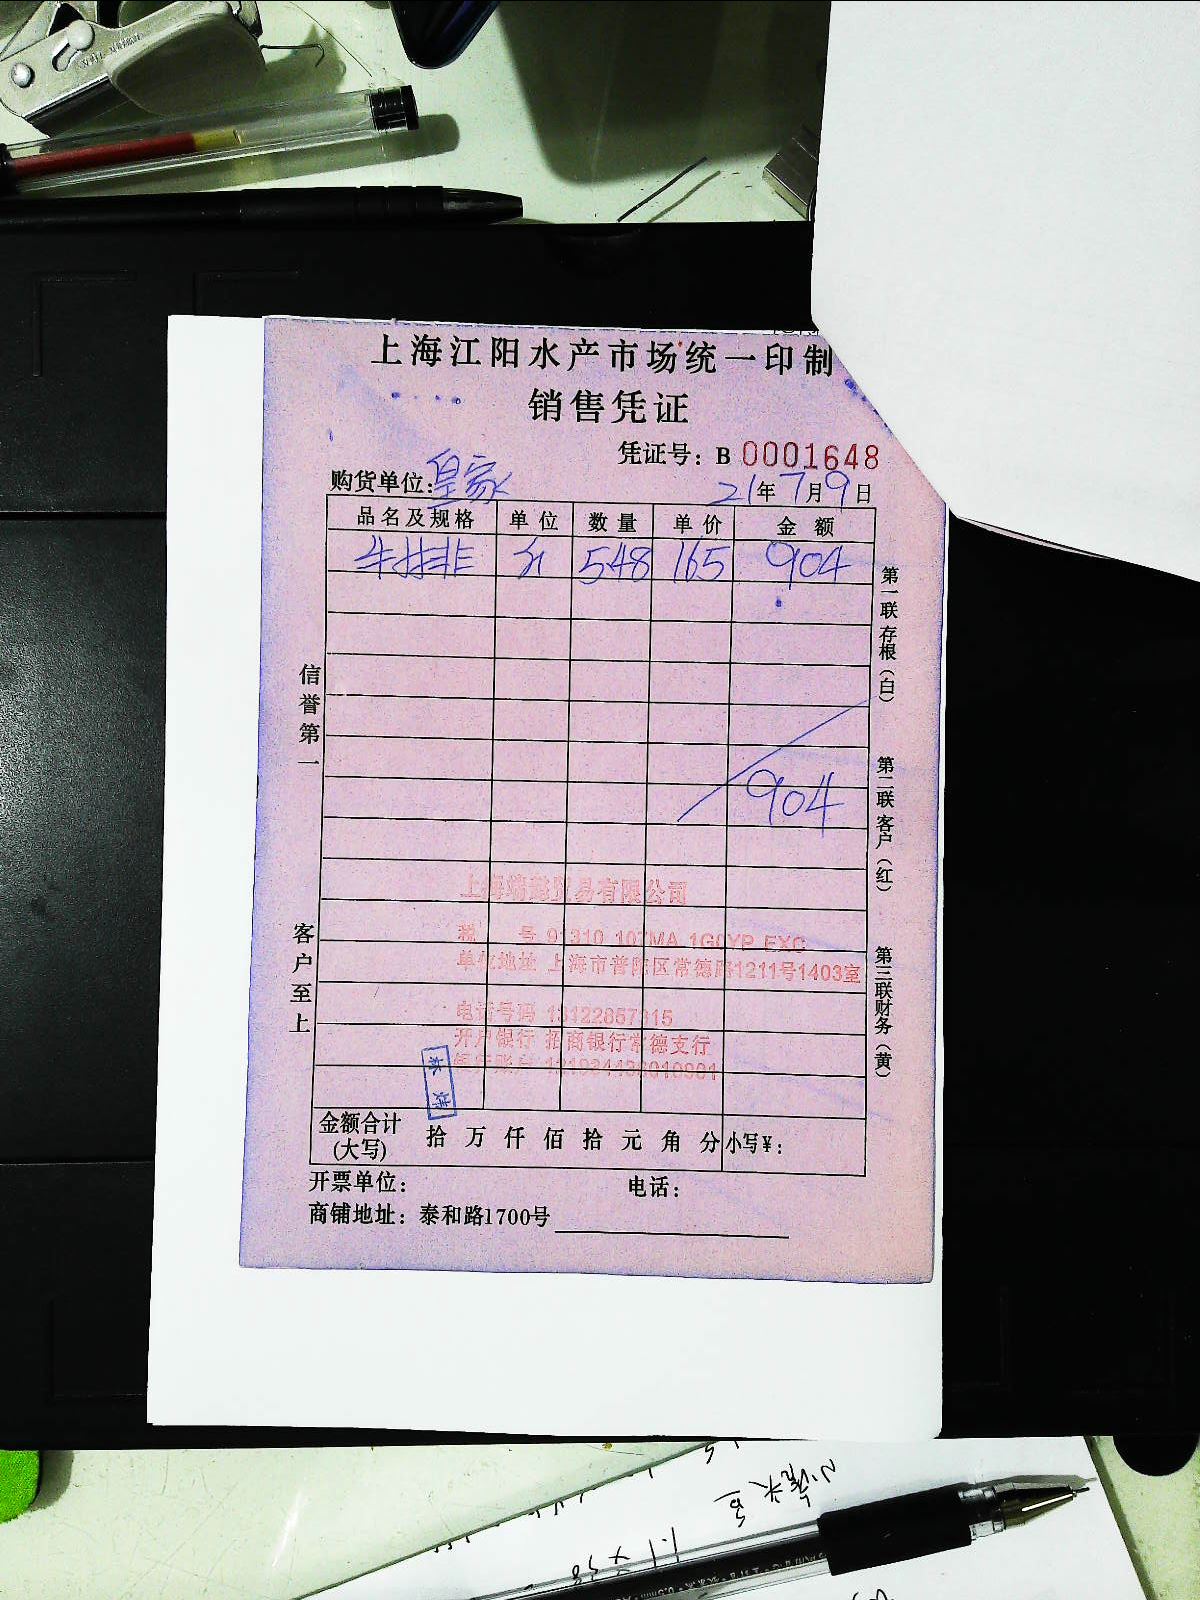 上海江阳水产市场统一印制
销售凭证
凭证号：B 0001648
购货单位：皇家
21年7月9日
品名及规格 单位 数量 单价 金额
牛排 548 165 904
904
信誉第一
客户至上
第一联存根（白）
第二联客户（红）
第三联财务（黄）
贸易有限公司
税 号 91310 107MA 1G0YP EXC
单位地址 上海市普陀区常德路1211号1403室
电话号码
开户银行 招商银行常德支行
银行账户
金额合计
(大写)
拾 万 仟 佰 拾 元 角 分 小写¥：
开票单位： 电话：
商铺地址：泰和路1700号